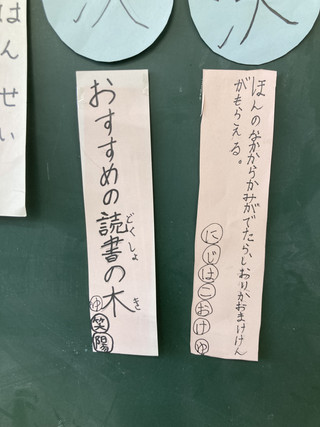 はんせい
おすすめの読書の木
どくしょ
き
ゆ笑陽
ほんのなかからかみがでたら、しおりかおまけけん
がもらえる。
にじはこおけゆ